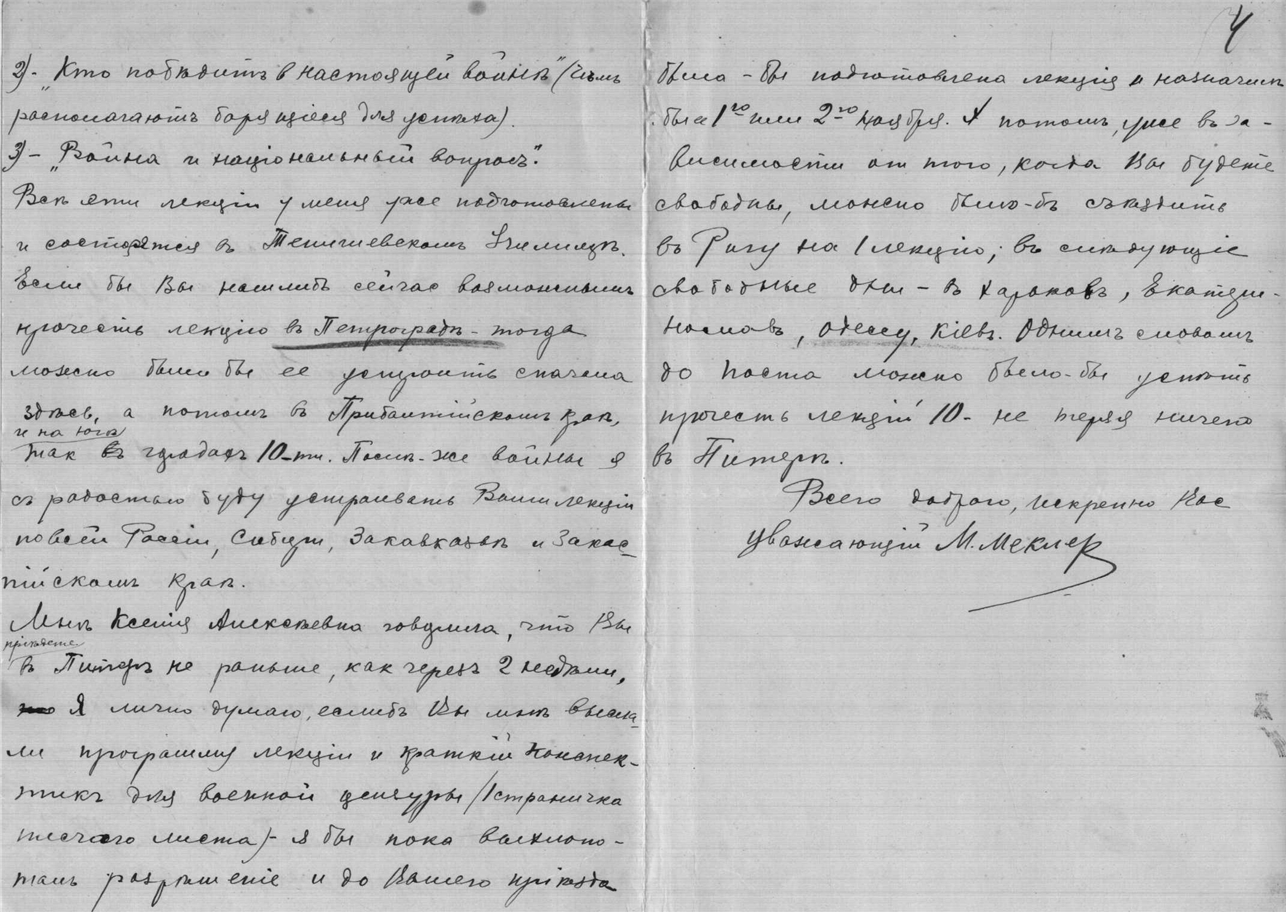 2)- „Кто побѣдитъ в настоящей войнѣ" (Чѣмъ
располагаютъ борящіеся для успѣха).
3)- „Война и національный вопросъ".
Всѣ эти лекціи у меня уже подготовлены
и состоятся въ Тенишевскомъ Училищѣ.
Если бы Вы нашлибъ сейчас возможнымъ
прочесть лекцію въ Петроградѣ - тогда
можно было бы ее устроить сначала
здѣсь, а потомъ въ Прибалтійскомъ краѣ,
и на югѣ
так въ городахъ 10-ти. Послѣ-же войны я
съ радостью буду устраивать Ваши лекціи
по всей Россіи, Сибири, Закавказьѣ и Закас-
пійскомъ краѣ.
Мнѣ Ксенія Алексѣевна говорила, что Вы
пріѣдете
въ Питеръ не раньше, как через 2 недѣли,
Я лично думаю, еслибъ Вы мнѣ высла-
ли программу лекціи и краткій конспек-
тикъ для военной цензуры (1 страничка
писчаго листа) - я бы пока выхлопо-
талъ разрѣшеніе и до Вашего пріѣзда
4
была - бы подготовлена лекція и назначить
бы на 1го или 2-го Ноября. А потомъ, уже въ за-
висимости от того, когда Вы будете
свободны, можно было-бъ съѣздить
въ Ригу на 1 лекцію; въ слѣдующіе
свободные дни - въ Харьковъ, Екатери-
нославъ, Одессу, Кіевъ. Однимъ словомъ
до поста можно было-бы успѣть
прочесть лекцій 10- не теряя ничего
въ Питерѣ.
Всего добраго, искренно Вас
уважающій М. Меклер